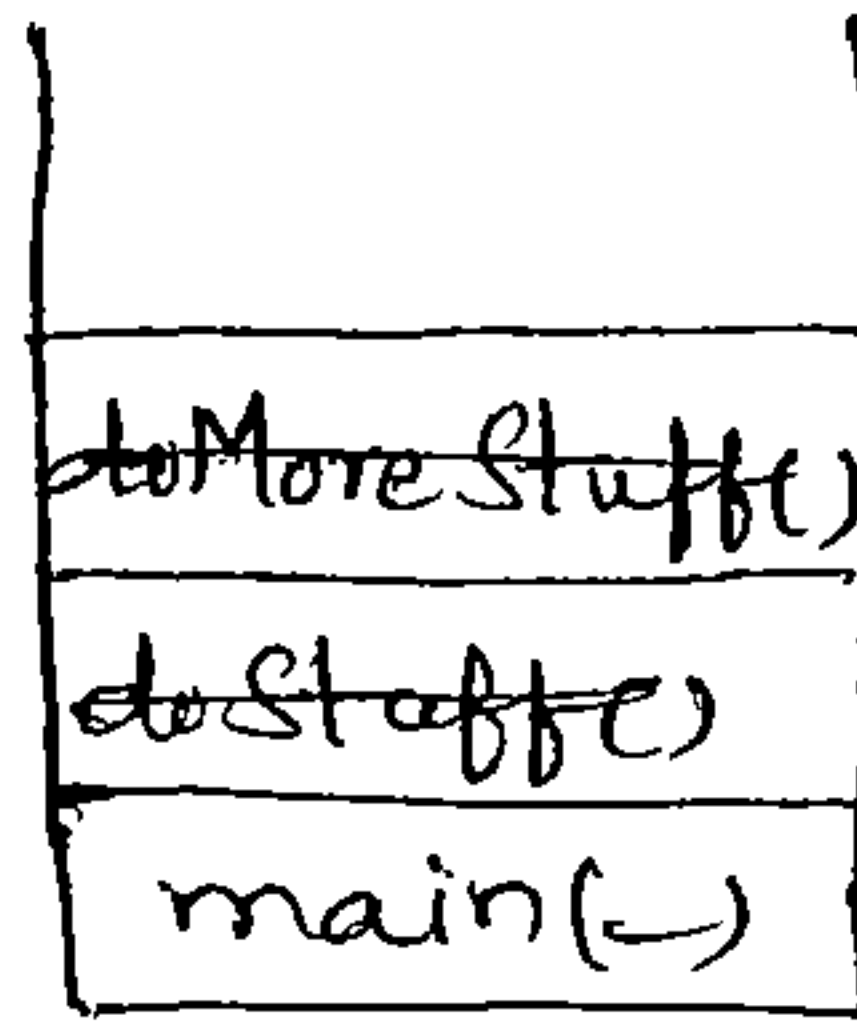 doMoreStuff()
doStuff()
main(_)